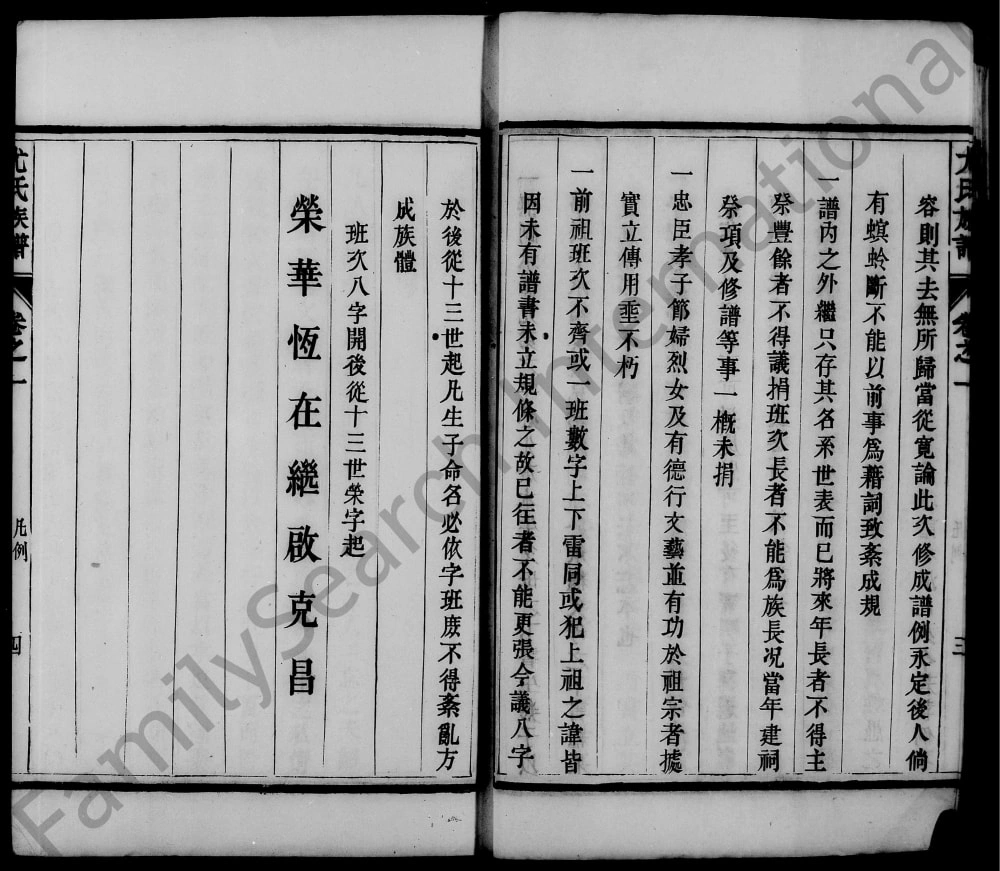 尤氏族譜
卷之一
三
容則其去無所歸當從寬論此次修成譜例永定後人倘
有螟蛉斷不能以前事爲藉詞致紊成規
一譜內之外繼只存其名系世表而已將來年長者不得主
祭豐餘者不得議捐班次長者不能爲族長況當年建祠
祭項及修譜等事一概未捐
一忠臣孝子節婦烈女及有德行文藝並有功於祖宗者據
實立傳用垂不朽
一前祖班次不齊或一班數字上下雷同或犯上祖之諱皆
因未有譜書未立規條之故已往者不能更張今議八字
於後從十三世起凡生子命名必依字班庶不得紊亂方
成族體
班次八字開後從十三世榮字起
榮華恆在繼啟克昌
尤氏族譜
卷之一
凡例
四
FamilySearch International